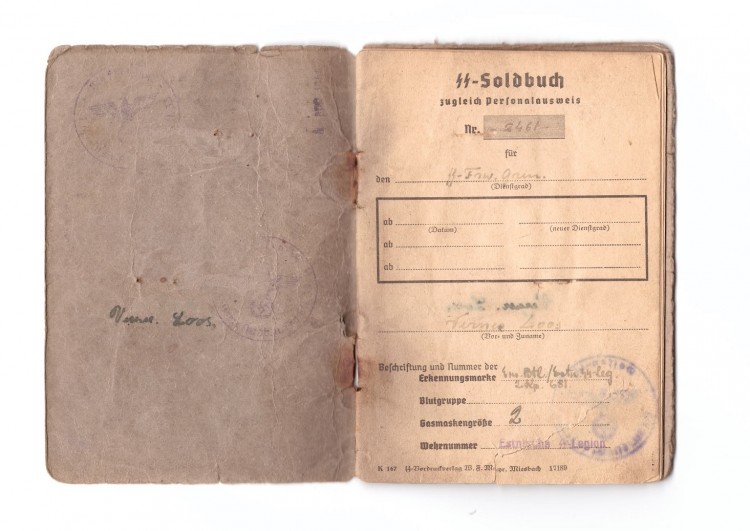 Verner. Loos.
ϟϟ-Soldbuch
zugleich Personalausweis
Nr. - 2461 -
für
den ϟϟ-Frw. Gren.
(Dienstgrad)
ab
(Datum) (neuer Dienstgrad)
ab
ab
Verner. Loos.
Verner Loos
(Vor- und Zuname)
Beschriftung und Nummer der
Erkennungsmarke Ers. Btl./Estn. ϟϟ-Leg
Blutgruppe
Gasmaskengröße 2
Wehrnummer Estnische ϟϟ-Legion
K 167 ϟϟ-Vordruckverlag W. F. Mayr, Miesbach 17189